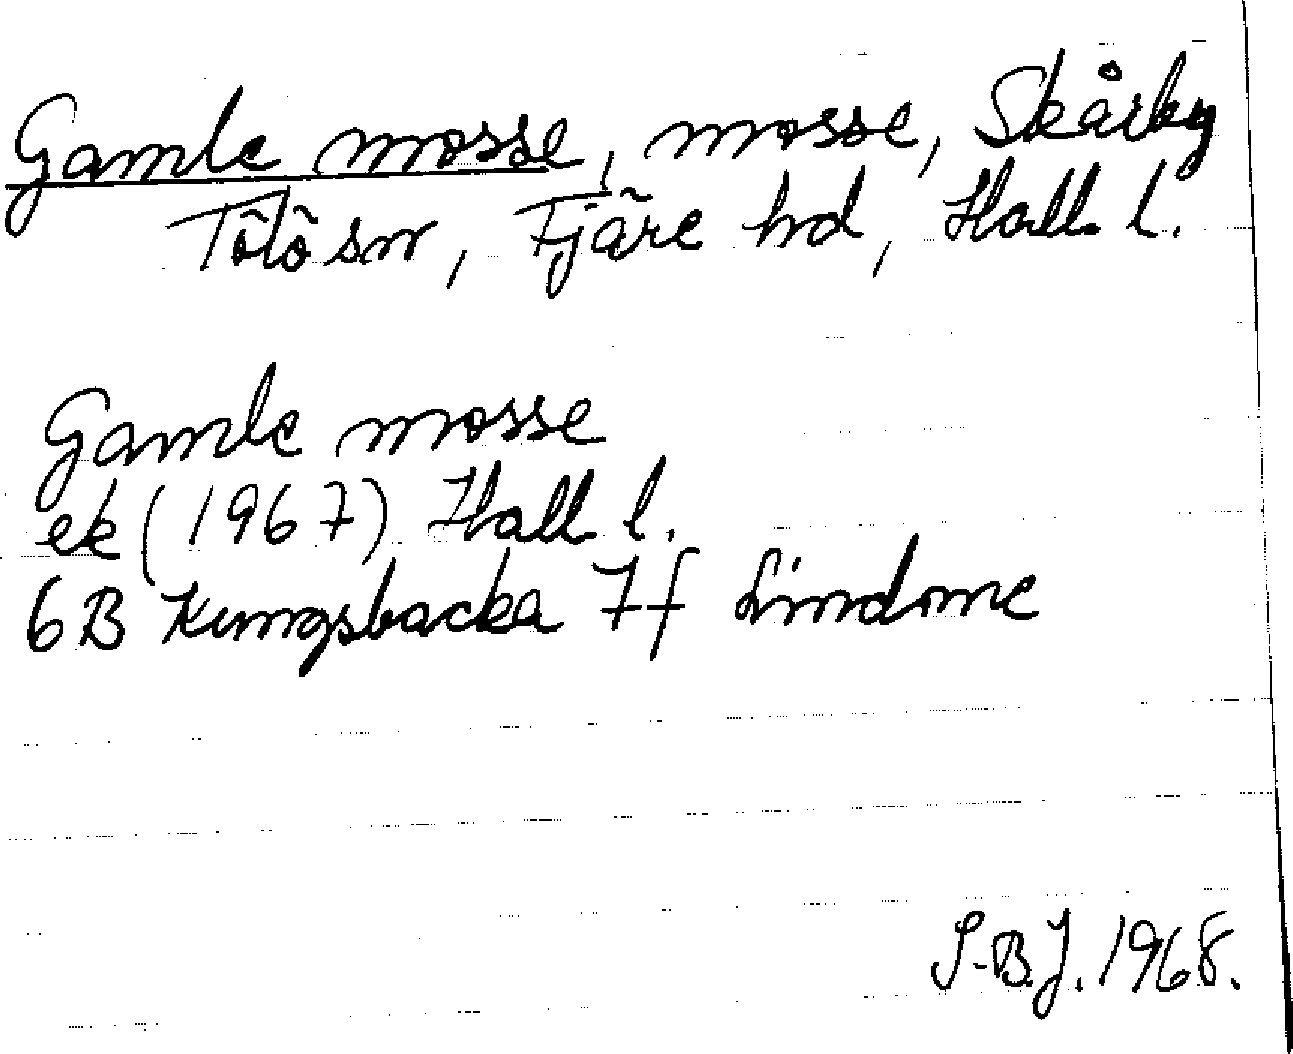 Gamle mosse, mosse, Skårby
Tölö sn, Fjäre hd, Hall. l.
Gamle mosse
ek (1967) Hall l.
6B Kungsbacka 7f Lindome
S-B.J. 1968.